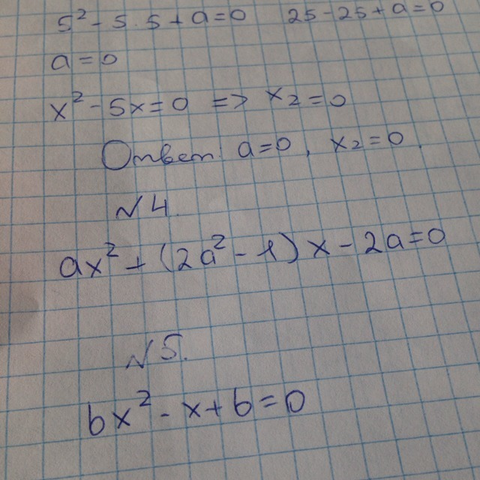 5² - 5·5 + a = 0   25 - 25 + a = 0
a = 0
x² - 5x = 0 => x₂ = 0
Ответ a = 0, x₂ = 0.
№4.
ax² + (2a² - 1)x - 2a = 0
№5.
bx² - x + b = 0